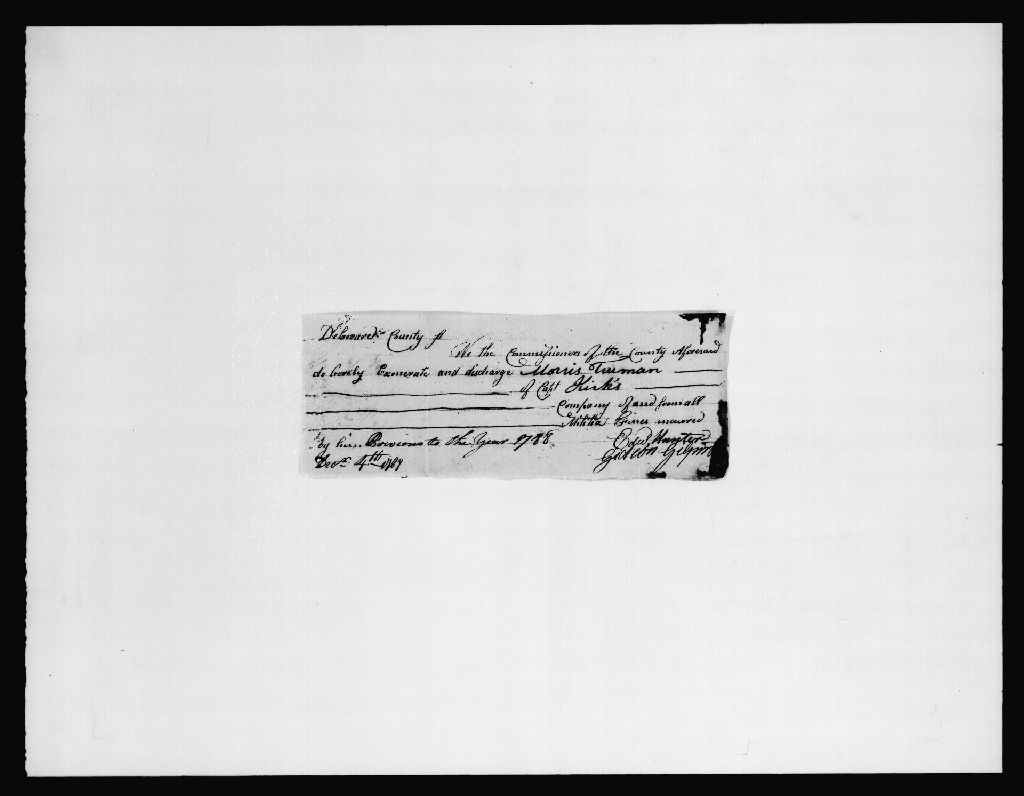 Delaware County ss
We the Commissioners of the County Aforesaid
do hereby Exonerate and discharge Morris Truman
of Capt Kirk's
Company of and from all
Militia Fines incurred
by him Previous to the Year 1788
Edwd Hunter
Decr 4th 1789 Gideon Gilpin